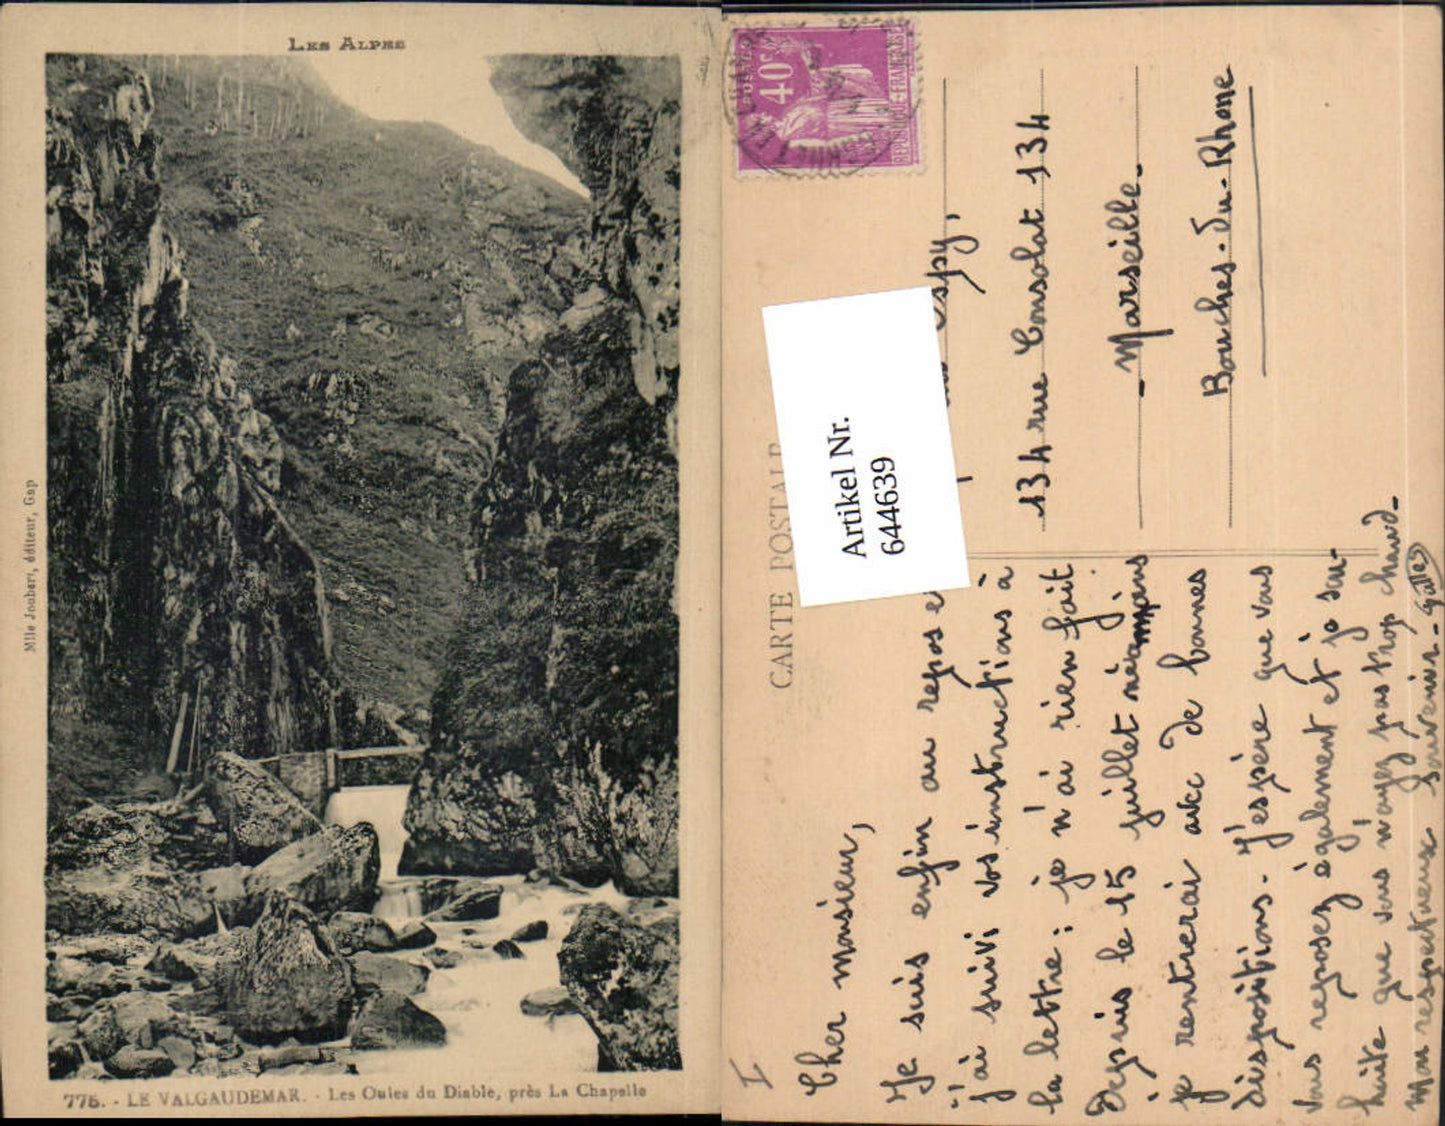 LES ALPES
Mlle Joubert, éditeur, Gap
775. - LE VALGAUDEMAR. - Les Oules du Diable, près La Chapelle
CARTE POSTALE
POSTES
40c
REPUBLIQUE FRANÇAISE
Artikel Nr.
644639
Espy,
134 rue Consolat 134
- Marseille -
Bouches-du-Rhône
Cher monsieur,
Je suis enfin au repos e
j'ai suivi vos instructions à
la lettre : je n'ai rien fait
depuis le 15 juillet néanmoins
je rentrerai avec de bonnes
dispositions. J'espère que vous
vous reposez également et je sou-
haite que vous n'ayez pas trop chaud.
Mon respectueux souvenir - Gallet